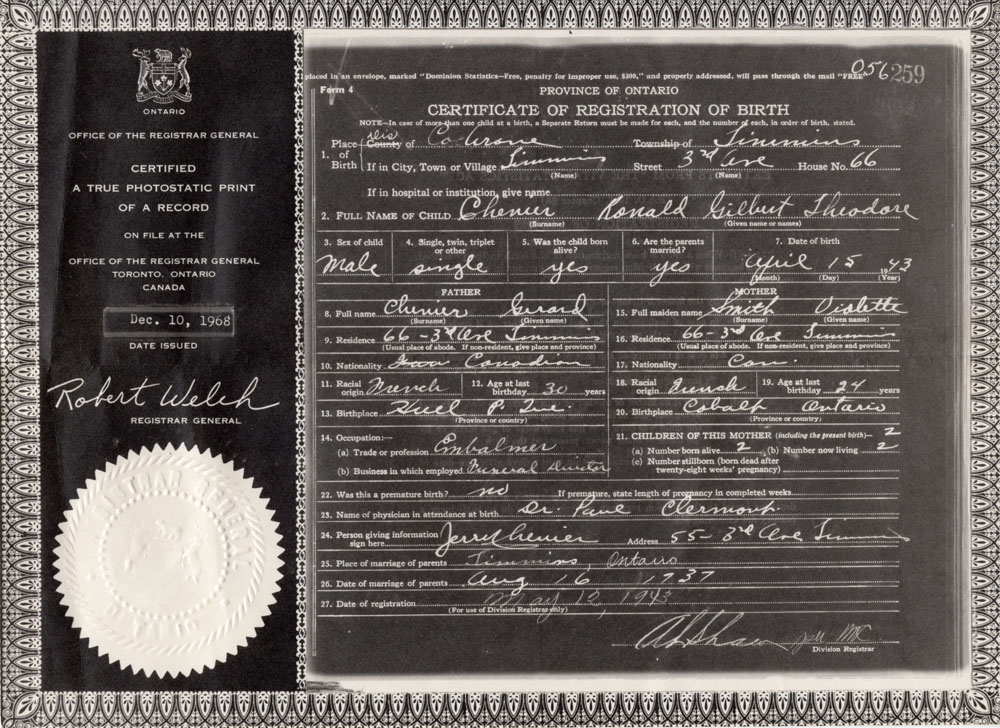 ONTARIO
OFFICE OF THE REGISTRAR GENERAL
CERTIFIED
A TRUE PHOTOSTATIC PRINT
OF A RECORD
ON FILE AT THE
OFFICE OF THE REGISTRAR GENERAL
TORONTO, ONTARIO
CANADA
Dec. 10, 1968
DATE ISSUED
Robert Welch
REGISTRAR GENERAL
placed in an envelope, marked "Dominion Statistics—Free, penalty for improper use, $300," and properly addressed, will pass through the mail "FREE"
056259
Form 4
PROVINCE OF ONTARIO
CERTIFICATE OF REGISTRATION OF BIRTH
NOTE—In case of more than one child at a birth, a Separate Return must be made for each, and the number of each, in order of birth, stated.
1. Place of Birth
Dis County of Cochrane Township of Timmins
If in City, Town or Village Timmins Street 3rd Ave House No. 66
(Name) (Name)
If in hospital or institution, give name
2. FULL NAME OF CHILD Chenier Ronald Gilbert Theodore
(Surname) (Given name or names)
3. Sex of child 4. Single, twin, triplet or other 5. Was the child born alive? 6. Are the parents married? 7. Date of birth
Male single yes yes April 15 1943
(Month) (Day) (Year)
FATHER MOTHER
8. Full name Chenier Gerard 15. Full maiden name Smith Violette
(Surname) (Given name) (Surname) (Given name)
9. Residence 66-3rd Ave Timmins 16. Residence 66-3rd Ave Timmins
(Usual place of abode. If non-resident, give place and province) (Usual place of abode. If non-resident, give place and province)
10. Nationality Canadian 17. Nationality Can.
11. Racial origin French 12. Age at last birthday 30 years 18. Racial origin French 19. Age at last birthday 24 years
13. Birthplace P. Que. 20. Birthplace Cobalt Ontario
(Province or country) (Province or country)
14. Occupation:— 21. CHILDREN OF THIS MOTHER (including the present birth)— 2
(a) Trade or profession Embalmer (a) Number born alive 2 (b) Number now living 2
(b) Business in which employed Funeral Director (c) Number stillborn (born dead after twenty-eight weeks' pregnancy)
22. Was this a premature birth? no If premature, state length of pregnancy in completed weeks
23. Name of physician in attendance at birth Dr. Paul Clermont.
24. Person giving information sign here Jerry Chenier Address 55-3rd Ave Timmins
25. Place of marriage of parents Timmins, Ontario
26. Date of marriage of parents Aug 16 1937
27. Date of registration May 12, 1943
(For use of Division Registrar only)
Shaw
Division Registrar